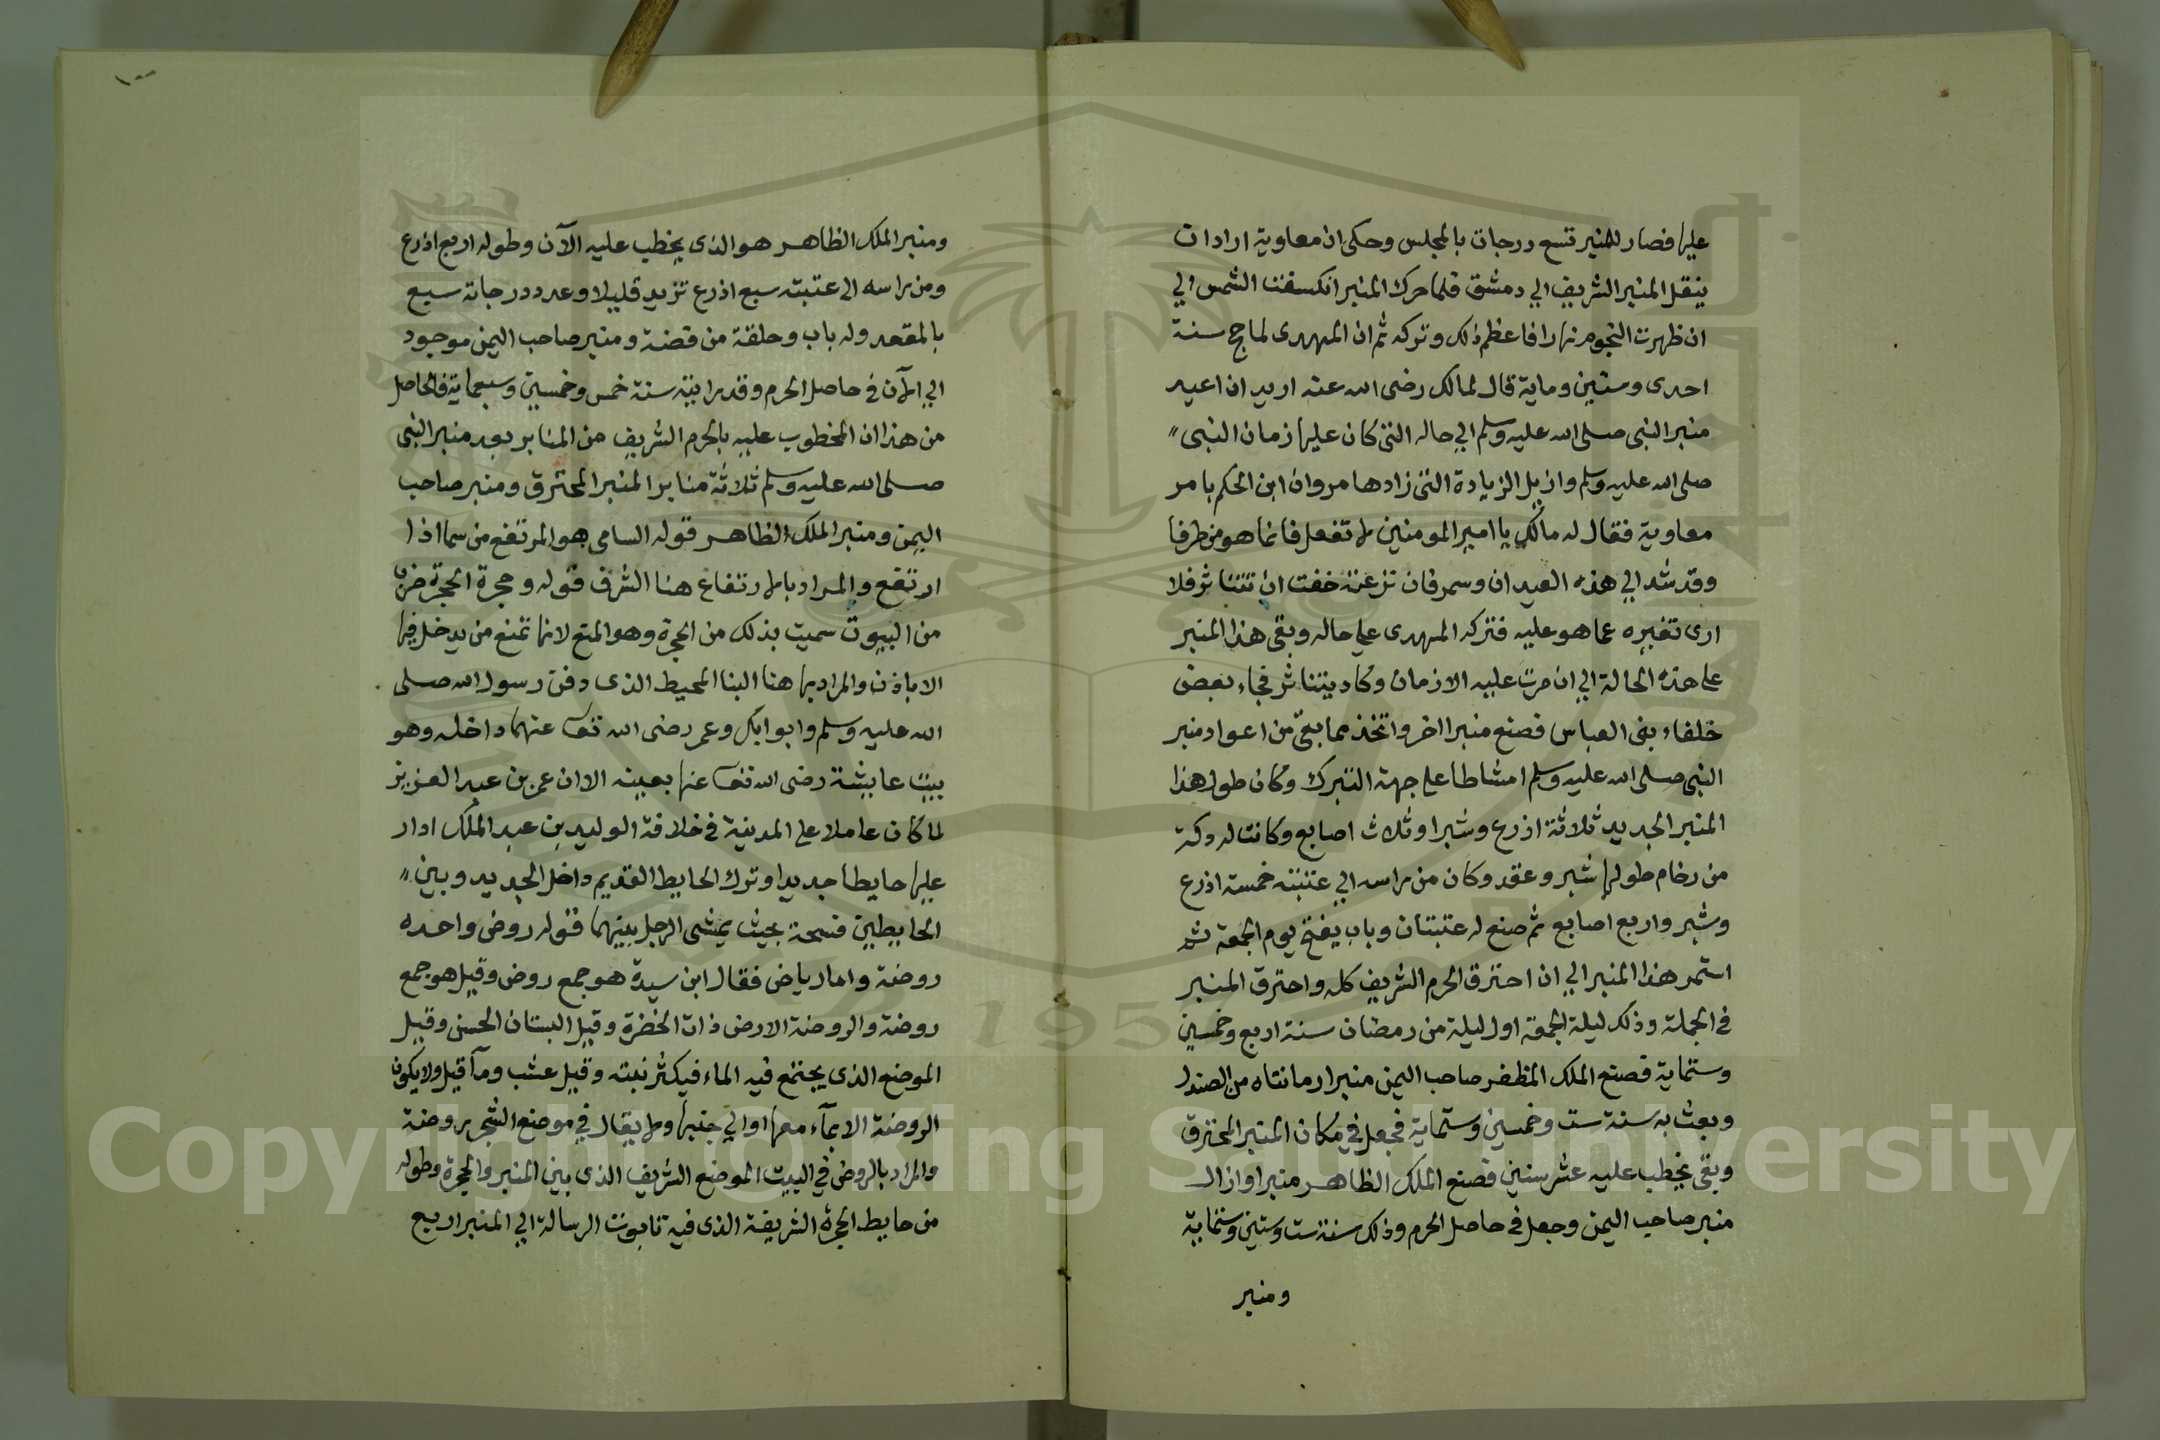 عليها فصار للمنبر تسع درجات بالمجلس وحكى ان معاوية اراد ان
ينقل المنبر الشريف الي دمشق فلما حرك المنبر انكسفت الشمس الي
ان ظهرت النجوم نهارا فاعظم ذلك وتركه ثم ان المهدى لما حج سنة
احدى وستين وماية قال لمالك رضى الله عنه اريد ان اعيد
منبر النبى صلى الله عليه وسلم الي حاله التى كان عليها زمان النبى
صلى الله عليه وسلم وازيل الزيادة التى زادها مروان ابن الحكم بامر
معاوية فقال له مالك يا امير المومنين لا تفعل فانما هو من طرفا
وقد شد الي هذه العيدان وسمر فان نزعته خفت ان تتناثر فلا
ارى تغيره عما هو عليه فتركه المهدى علي حاله وبقى هذا المنبر
على هذه الحالة الي ان مرت عليه الازمان وكاد يتناثر فجاء بعض
خلفاء بنى العباس فصنع منبرا اخر واتخذ مما بقي من اعواد منبر
النبى صلى الله عليه وسلم امشاطا على جهة التبرك وكان طول هذا
المنبر الجديد ثلاثة اذرع وشبرا وثلاث اصابع وكانت له دكة
من رخام طولها شبر وعقد وكان من راسه الي عتبته خمسة اذرع
وشبر واربع اصابع ثم صنع له عتبتان وباب يفتح يوم الجمعة ثم
استمر هذا المنبر الي ان احترق الحرم الشريف كله واحترق المنبر
فى الجملة وذلك ليلة الجمعة اول ليلة من رمضان سنة اربع وخمسين
وستماية فصنع الملك المظفر صاحب اليمن منبرا رمانتاه من الصندل
وبعث به سنة ست وخمسين وستماية فجعل في مكان المنبر المحترق
وبقى يخطب عليه عشر سنين فصنع الملك الظاهر منبرا وازال
منبر صاحب اليمن وجعل فى حاصل الحرم وذلك سنة ست وستين وستماية
ومنبر
١٠٠
ومنبر الملك الظاهر هو الذى يخطب عليه الآن وطوله اربع اذرع
ومن راسه الى عتبته سبع اذرع تزيد قليلا وعدد درجاته سبع
بالمقعد وله باب وحلقة من فضة ومنبر صاحب اليمن موجود
الي الآن فى حاصل الحرم وقد رايته سنة خمس وخمسين وسبعماية فالحاصل
من هذا ان المخطوب عليه بالحرم الشريف من المنابر بعد منبر النبى
صلى الله عليه وسلم ثلاثة منابر المنبر المحترق ومنبر صاحب
اليمن ومنبر الملك الظاهر قوله السامى هو المرتفع من سما اذا
ارتفع والمراد بالارتفاع هنا الشرف قوله وحجرة الحجرة
من البيوت سميت بذلك من الحجرة وهو المنع لانها تمنع من يدخل فيها
الا باذن والمراد بها هنا البنا المحيط الذى دفن رسول الله صلى
الله عليه وسلم وابوا بكر وعمر رضى الله تعالى عنهما داخله وهو
بيت عايشة رضى الله تعالى عنها بعينه الا ان عمر بن عبد العزيز
لما كان عاملا على المدينة فى خلافة الوليد بن عبد الملك ادار
عليها حايطا جديدا وترك الحايط القديم داخل الجديد وبين
الحايطين فسحة بحيث يمشى الرجل بينهما قوله روض واحده
روضة واما رياض فقال ابن سيدة هو جمع روض وقيل هو جمع
روضة والروضة الارض ذات الخضرة وقيل البستان الحسن وقيل
الموضع الذى يجتمع فيه الماء فيكثر نبته وقيل عشب ومآ قيل ولا يكون
الروضة الا بمآء معها او الي جنبها ولا يقال في موضع الشجر روضة
والمراد بالروض في البيت الموضع الشريف الذى بين المنبر والحجرة وطوله
من حايط الحجرة الشريفة الذى فيه تابوت الرسالة الي المنبر اربع
Copyright © King Saud University
1957